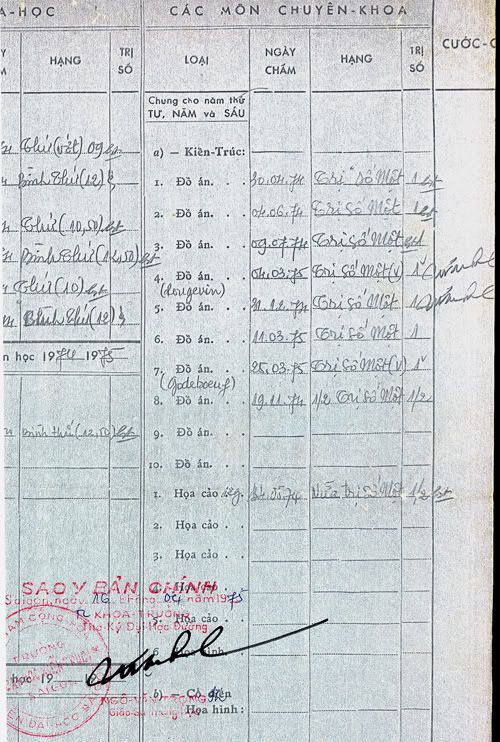 A-HỌC
CÁC MÔN CHUYÊN-KHOA
HẠNG
TRỊ SỐ
LOẠI
NGÀY CHẤM
HẠNG
TRỊ SỐ
CƯỚC-C
Chung cho năm thứ
TƯ, NĂM và SÁU
Thứ (vớt) 09
a) — Kiến-Trúc:
Bình Thứ (12)
1. Đồ án. . . 30.04.74 Trị số Một 1
Thứ (10,50)
2. Đồ án. . . 04.06.74 Trị số Một 1
Bình Thứ (12,50)
3. Đồ án. . . 09.07.74 Trị số Một 1
Thứ (10)
4. Đồ án. . . 04.03.75 Trị số Một (v) 1
(Lougevin)
Bình Thứ (12)
5. Đồ án. . . 31.12.74 Trị số Một 1
6. Đồ án. . . 11.03.75 Trị số Một 1
n học 1974 1975
7. Đồ án. . . 25.03.75 Trị số Một (v) 1
(Godeboeuf)
8. Đồ án. . . 19.11.74 1/2 Trị số Một 1/2
Bình thứ (12,50)
9. Đồ án. . .
10. Đồ án. . .
1. Họa cảo Nửa trị số Một 1/2
2. Họa cảo . .
3. Họa cảo . .
SAO Y BẢN CHÍNH
Saigon, ngày 16 tháng 04 năm 1975
KHOA-TRƯỞNG
5. Họa cảo . .
học 19
NGÔ-VĂN
b) — Cổ điển
Họa hình :